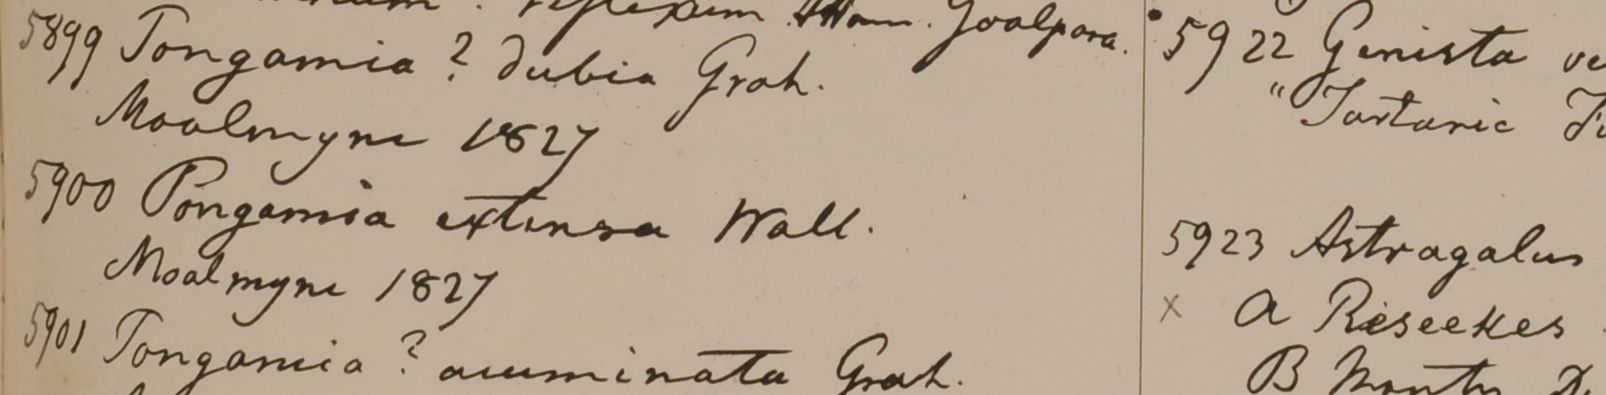 Ham. Goalpara.
5899 Pongamia ? dubia Grah.
Moalmyne 1827
5900 Pongamia extensa Wall.
Moalmyne 1827
5901 Pongamia ? acuminata Grah.
5922 Genista
"Tartaric
5923 Astragalus
x a
B